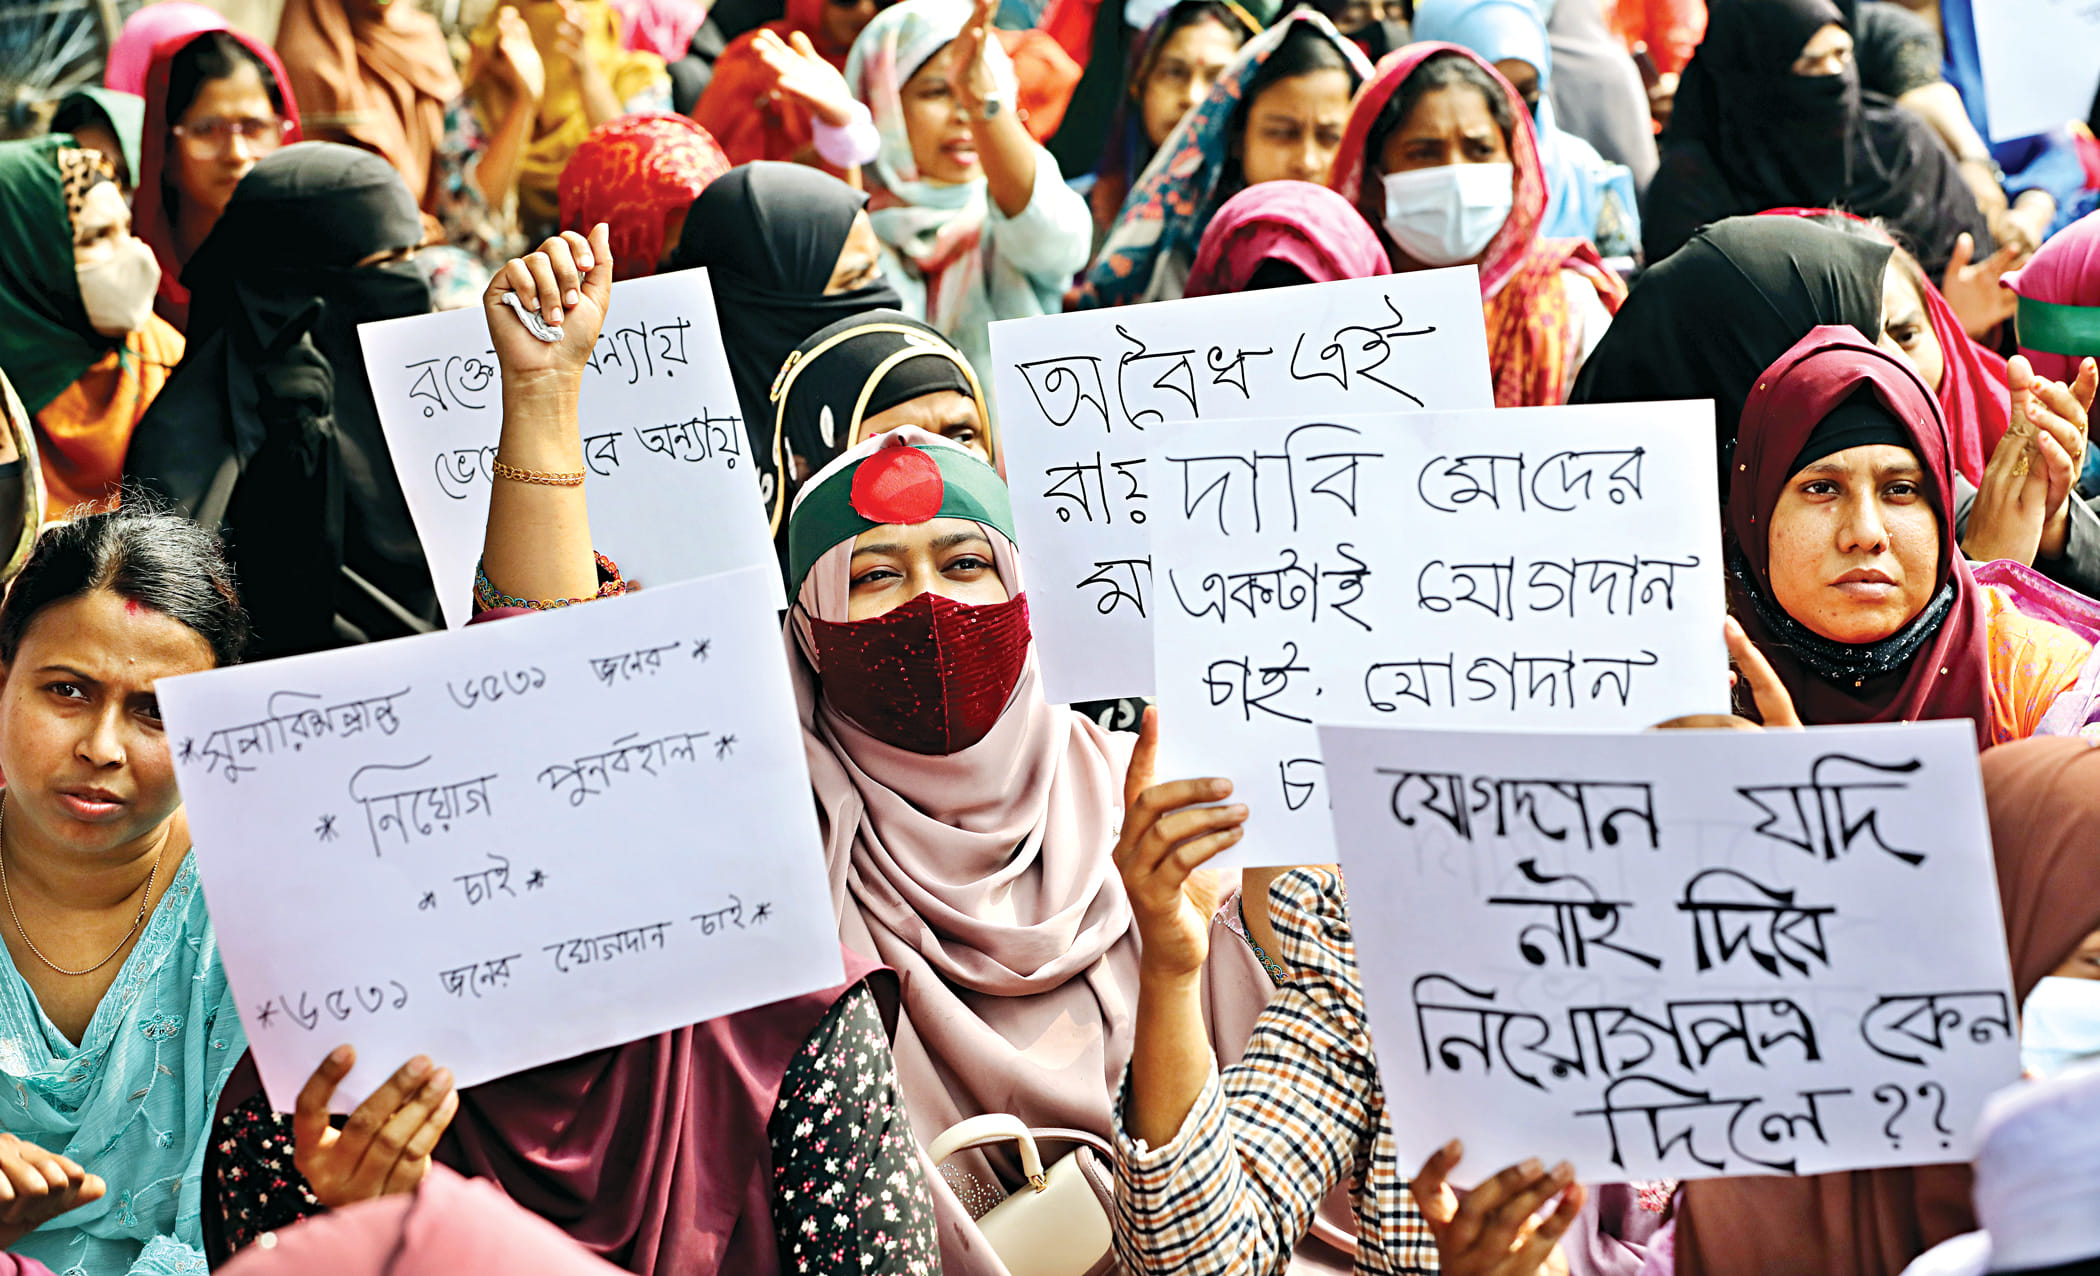 অন্যায়
বে অন্যায়
অবৈধ এই
রায়
মা
দাবি মোদের
একটাই যোগদান
চাই. যোগদান
*সুপারিশপ্রাপ্ত ৬৫৩১ জনের *
* নিয়োগ পুনর্বহাল *
* চাই *
*৬৫৩১ জনের যোগদান চাই *
যোগদান যদি
নাই দিবে
নিয়োগপত্র কেন
দিলে ??